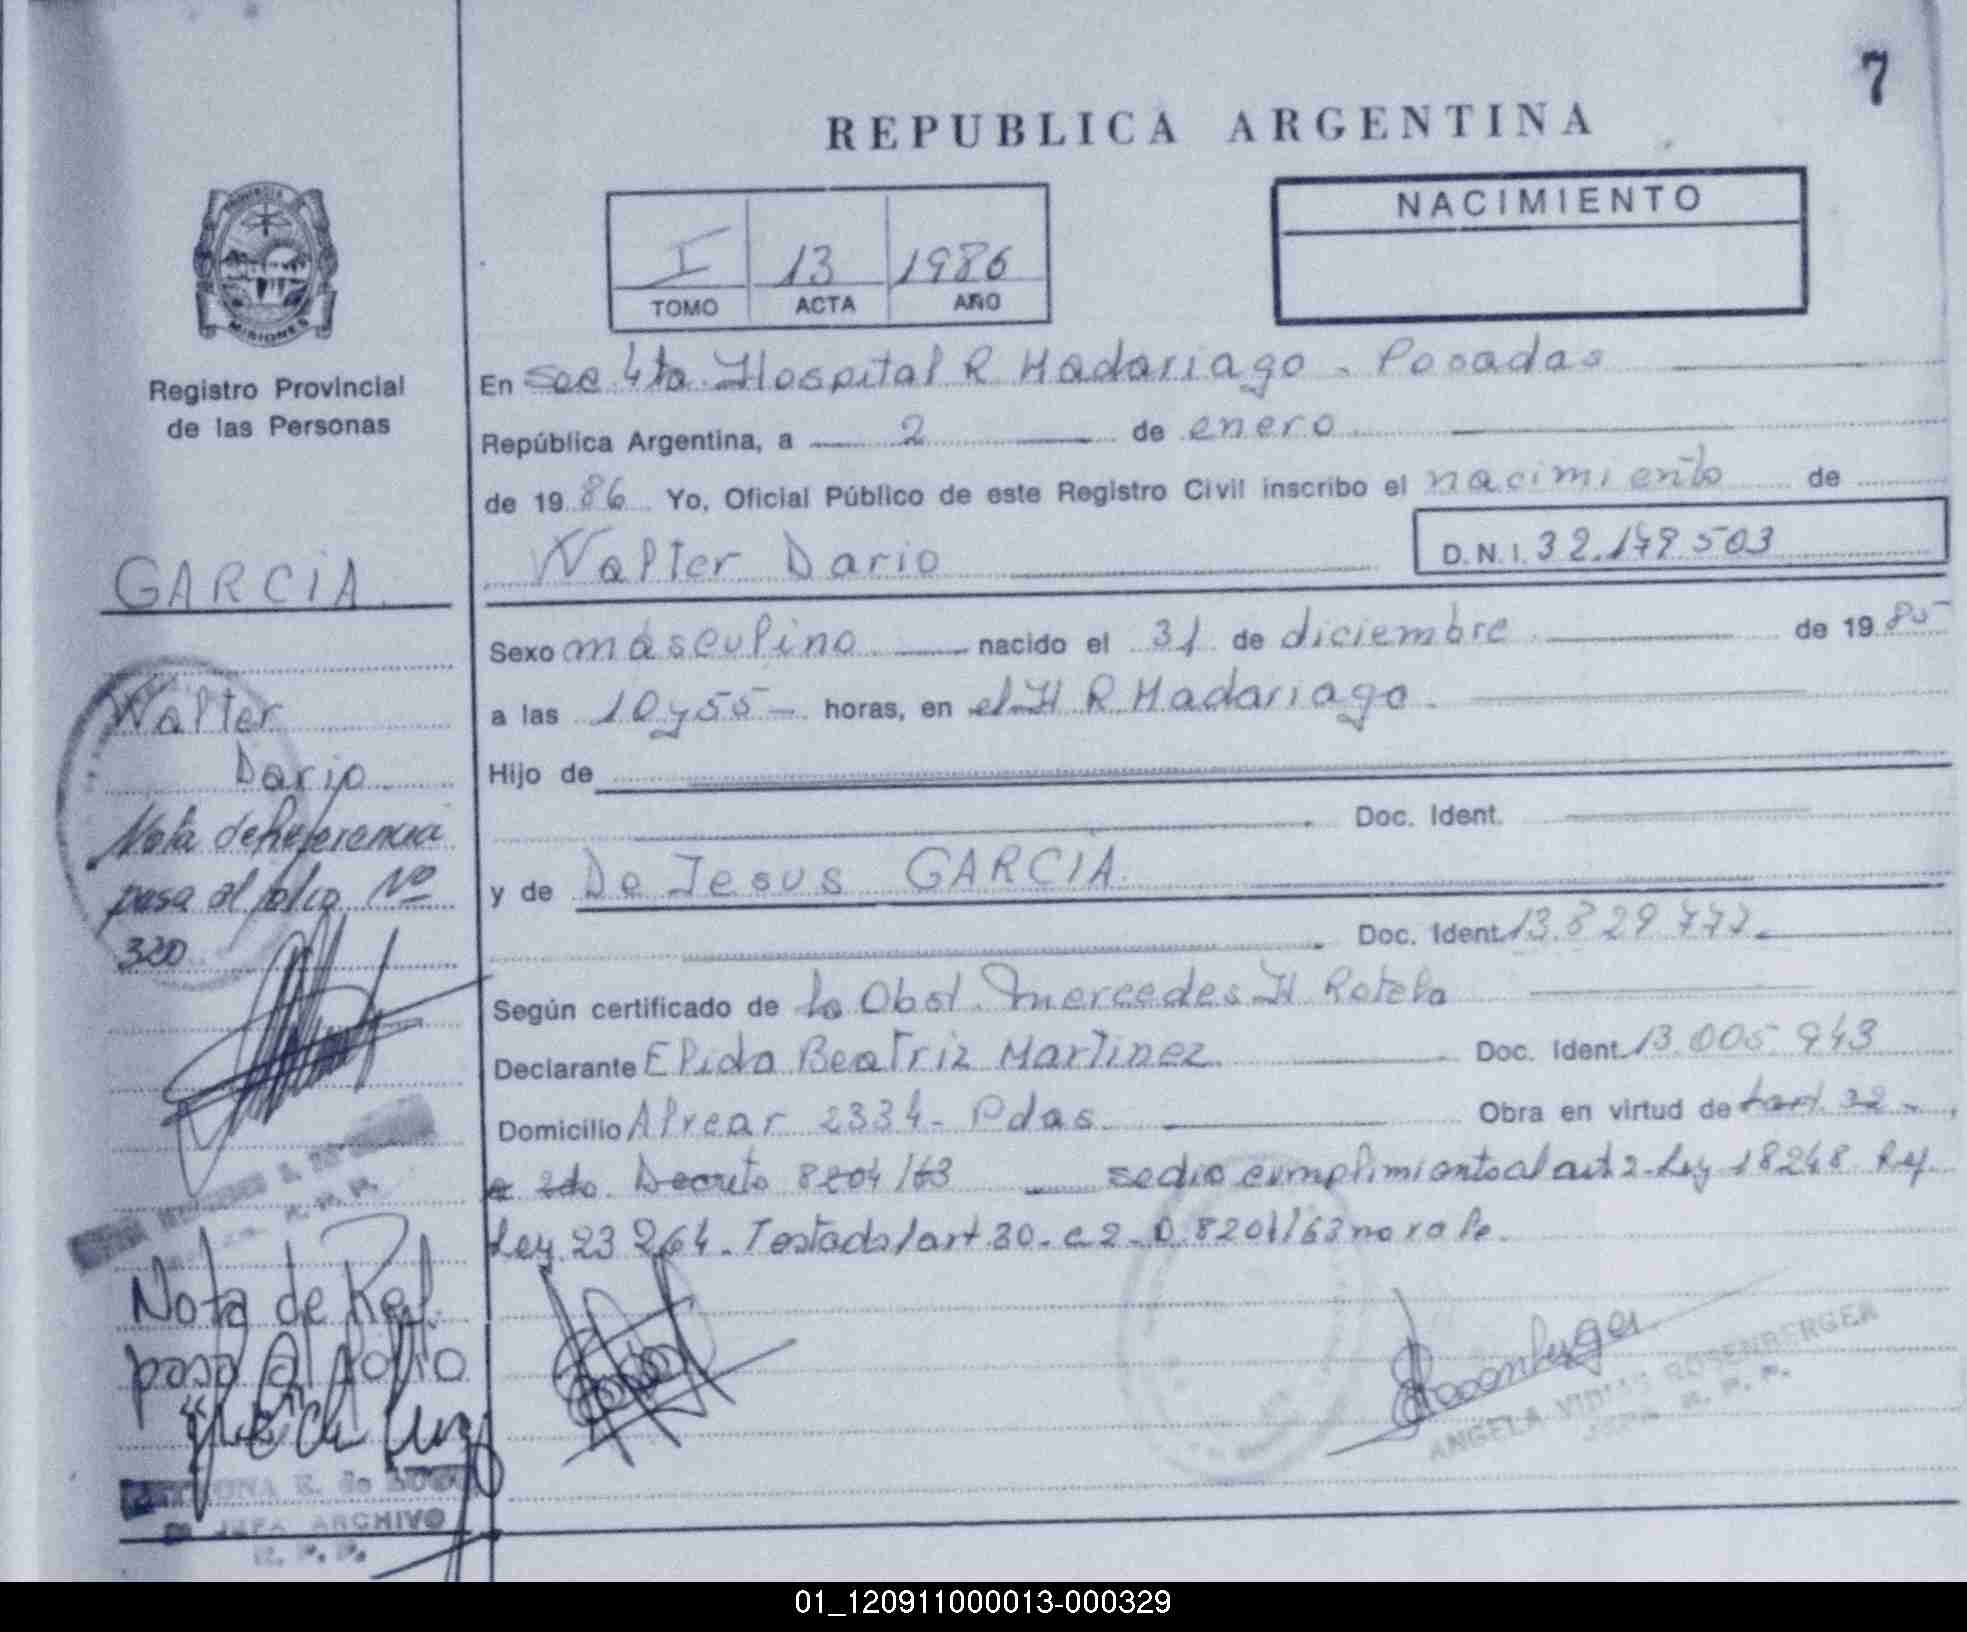 7
REPUBLICA ARGENTINA
PROVINCIA
MISIONES
Registro Provincial
de las Personas
I 13 1986
TOMO ACTA AÑO
NACIMIENTO
En Sec 4ta Hospital R Madariaga - Posadas
República Argentina, a 2 de enero
de 1986 Yo, Oficial Público de este Registro Civil inscribo el nacimiento de
Walter Dario D.N.I. 32.179.503
Sexo masculino nacido el 31 de diciembre de 1985
a las 10 y 55 - horas, en el H R Madariaga.
Hijo de
Doc. Ident.
y de De Jesus GARCIA.
Doc. Ident. 13.829.777.
Según certificado de la Obst. Mercedes H Rotela
Declarante Elida Beatriz Martinez Doc. Ident. 13.005.943
Domicilio Alvear 2334 - Pdas. Obra en virtud de
2do. Decreto 8204/63 se dio cumplimiento al art 2 - Ley 18248 Ref.
Ley 23264 - Testado/art 30 - c 2 - D. 8204/63 no vale.
ANGELA ROSENBERGER
JEFA R. P. P.
GARCIA
Walter
Dario
Nota de Referencia
pasa al folio Nº
320
Nota de Ref.
pasa al folio
E. de LUGO
JEFA ARCHIVO
R. P. P.
01_120911000013-000329